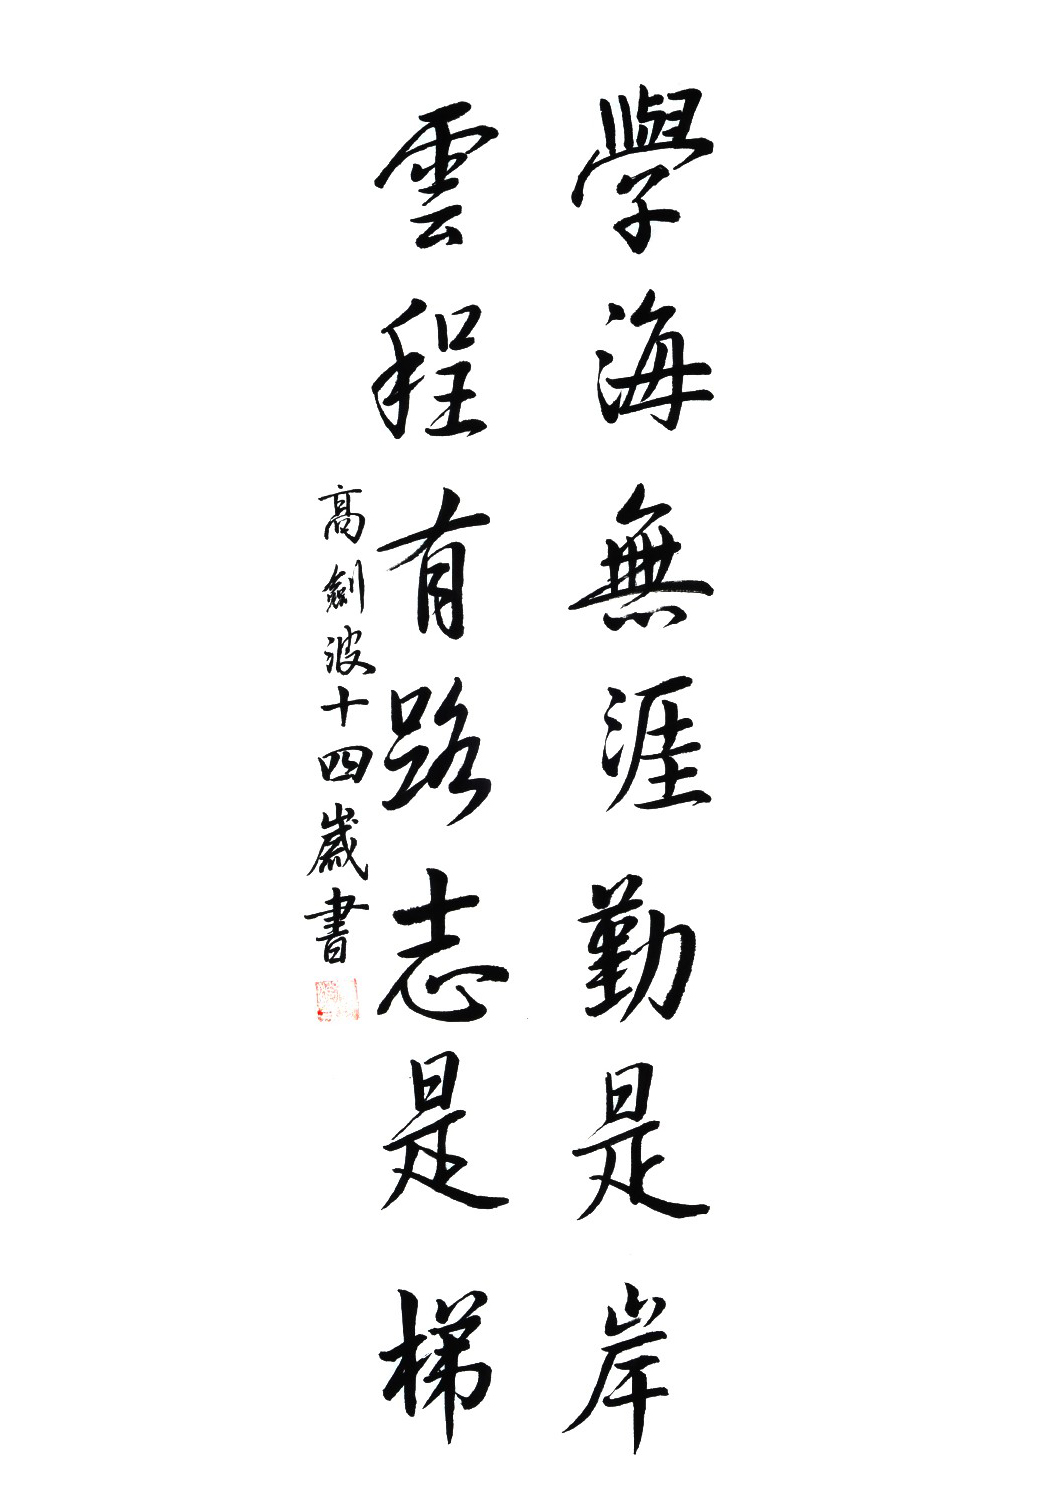 學海無涯勤是岸
雲程有路志是梯
高劍波十四歲書